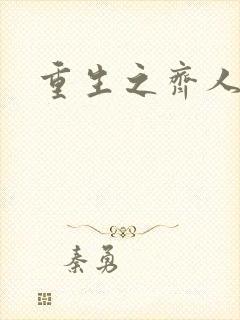 重生之齐人
秦勇